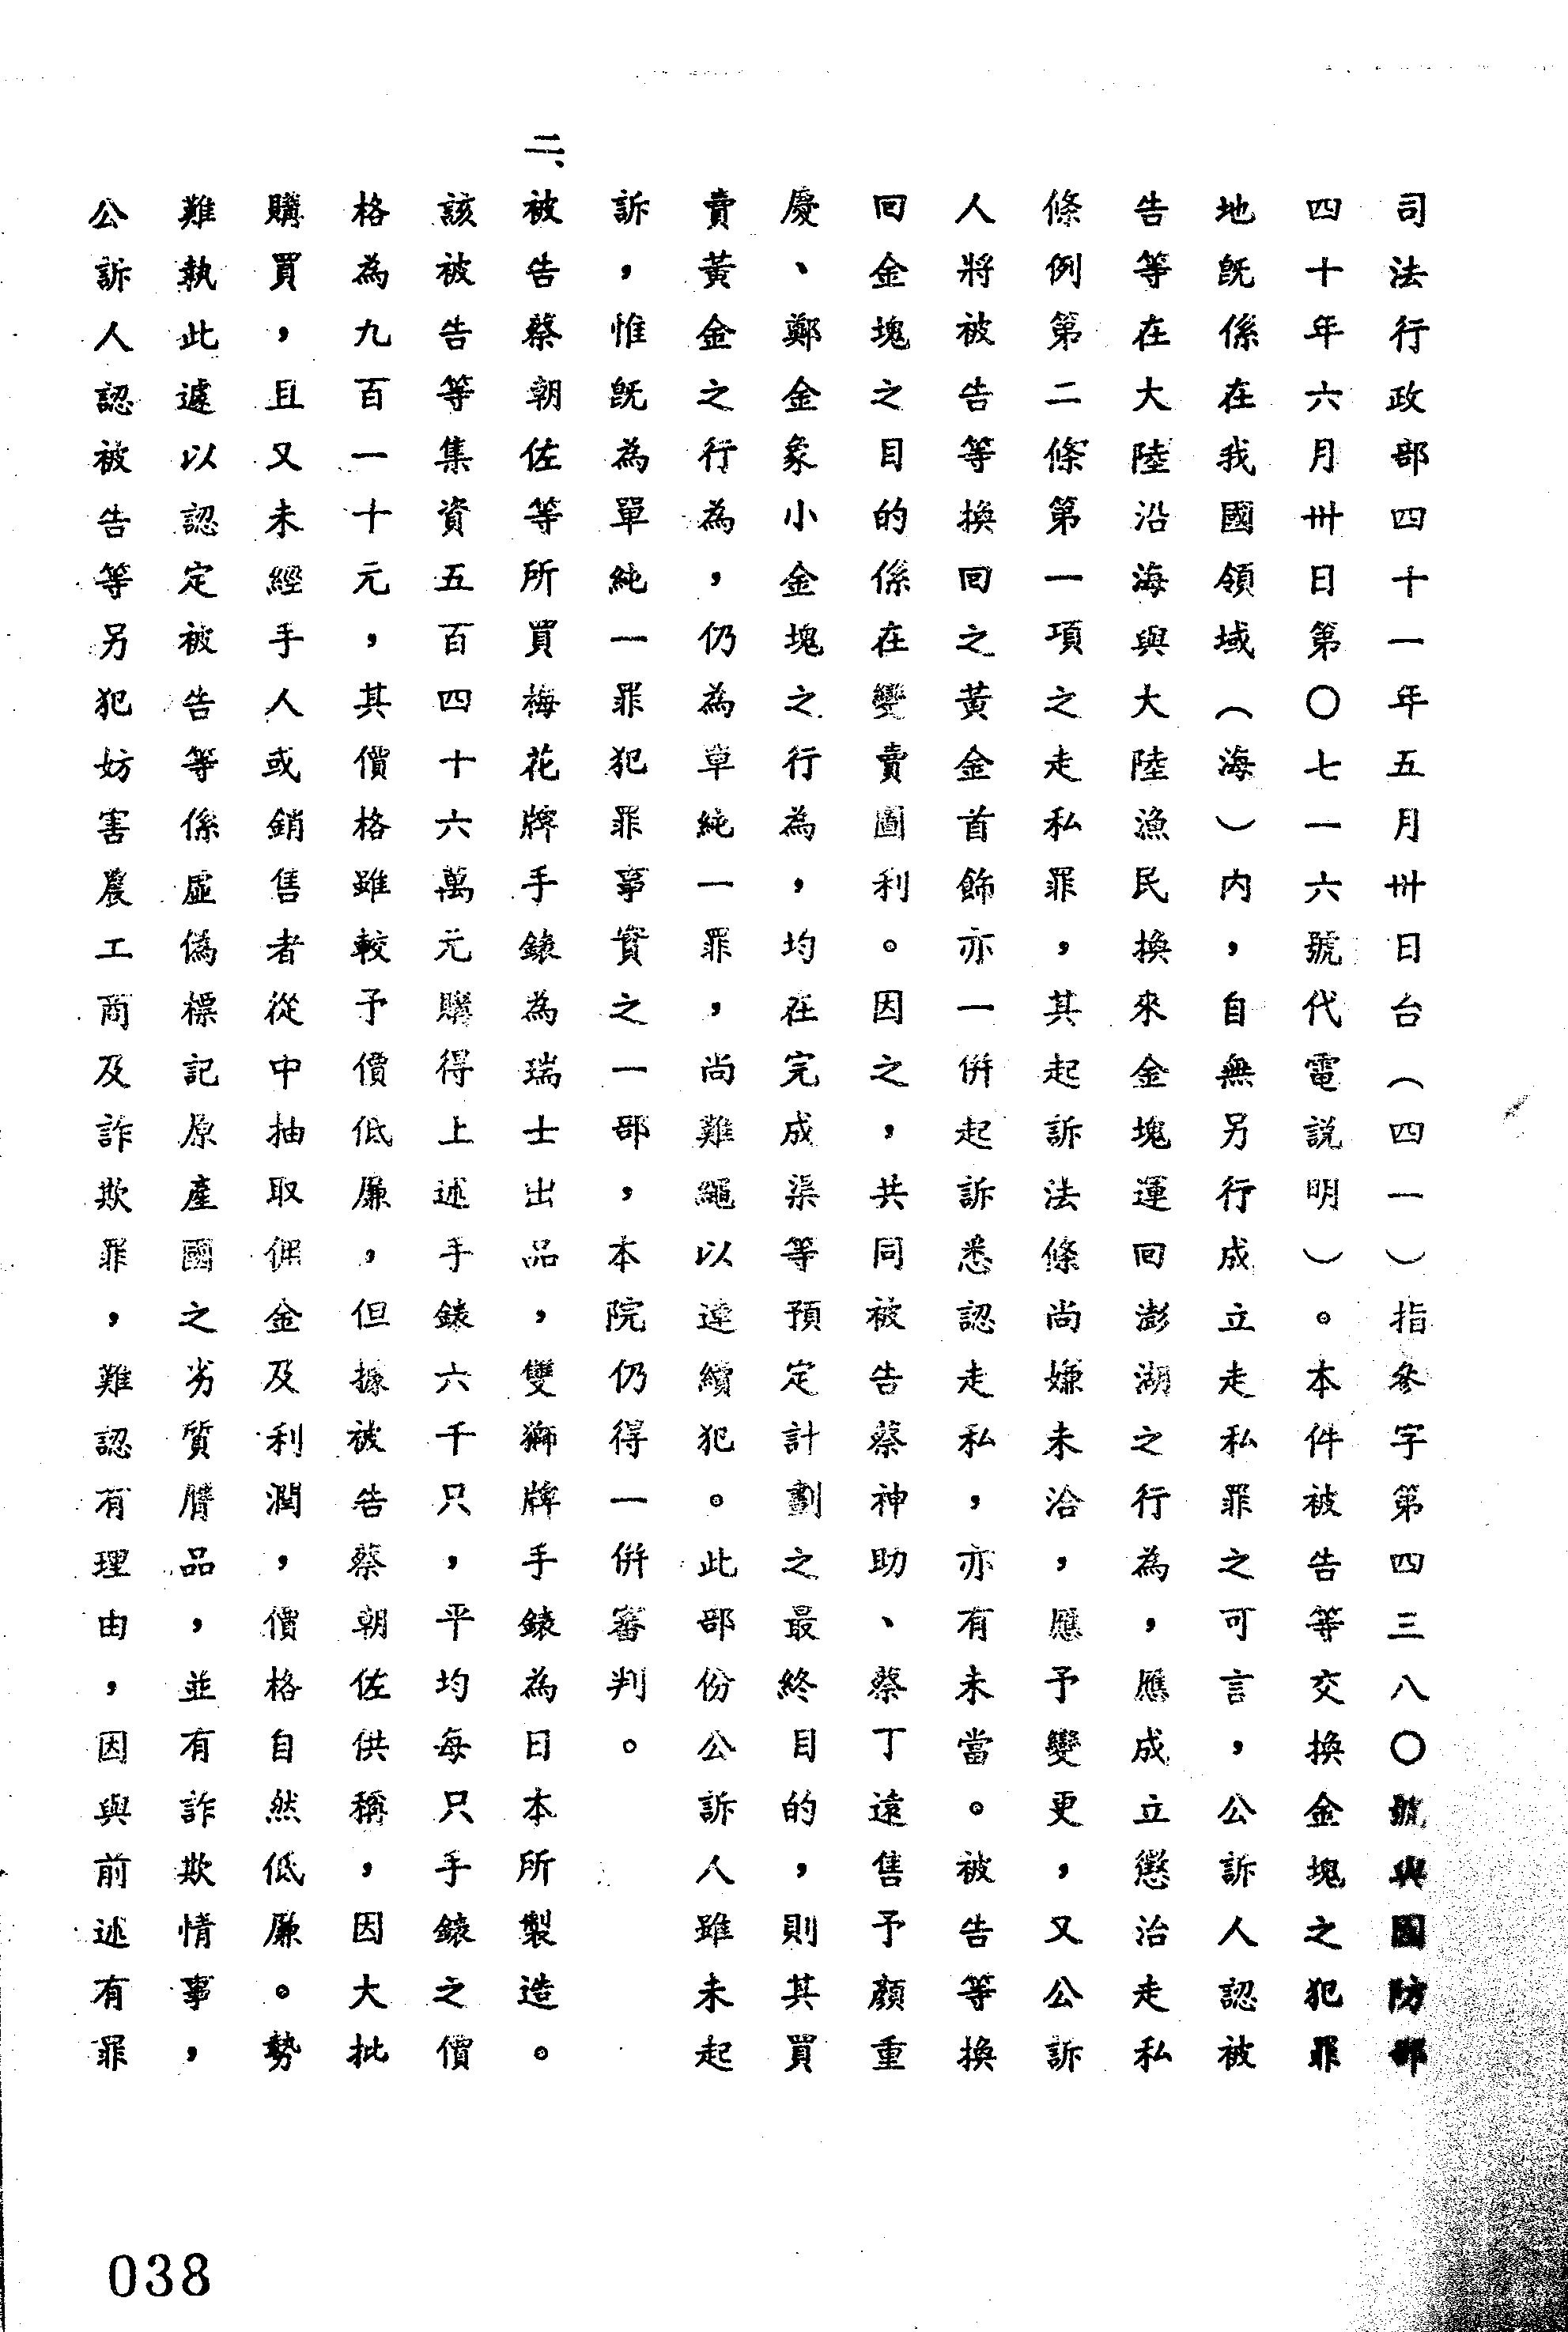 司法行政部四十一年五月卅日台（四一）指參字第四三八〇號與國防部
四十年六月卅日第〇七一六號代電說明）。本件被告等交換金塊之犯罪
地既係在我國領域（海）內，自無另行成立走私罪之可言，公訴人認被
告等在大陸沿海與大陸漁民換來金塊運回澎湖之行為，應成立懲治走私
條例第二條第一項之走私罪，其起訴法條尚嫌未洽，應予變更，又公訴
人將被告等換回之黃金首飾亦一併起訴悉認走私，亦有未當。被告等換
回金塊之目的係在變賣圖利。因之，共同被告蔡神助、蔡丁遠售予顏重
慶、鄭金象小金塊之行為，均在完成渠等預定計劃之最終目的，則其買
賣黃金之行為，仍為單純一罪，尚難繩以連續犯。此部份公訴人雖未起
訴，惟既為單純一罪犯罪事實之一部，本院仍得一併審判。
二、被告蔡朝佐等所買梅花牌手錶為瑞士出品，雙獅牌手錶為日本所製造。
該被告等集資五百四十六萬元購得上述手錶六千只，平均每只手錶之價
格為九百一十元，其價格雖較予價低廉，但據被告蔡朝佐供稱，因大批
購買，且又未經手人或銷售者從中抽取佣金及利潤，價格自然低廉。勢
難執此遽以認定被告等係虛偽標記原產國之劣質膺品，並有詐欺情事，
公訴人認被告等另犯妨害農工商及詐欺罪，難認有理由，因與前述有罪
038